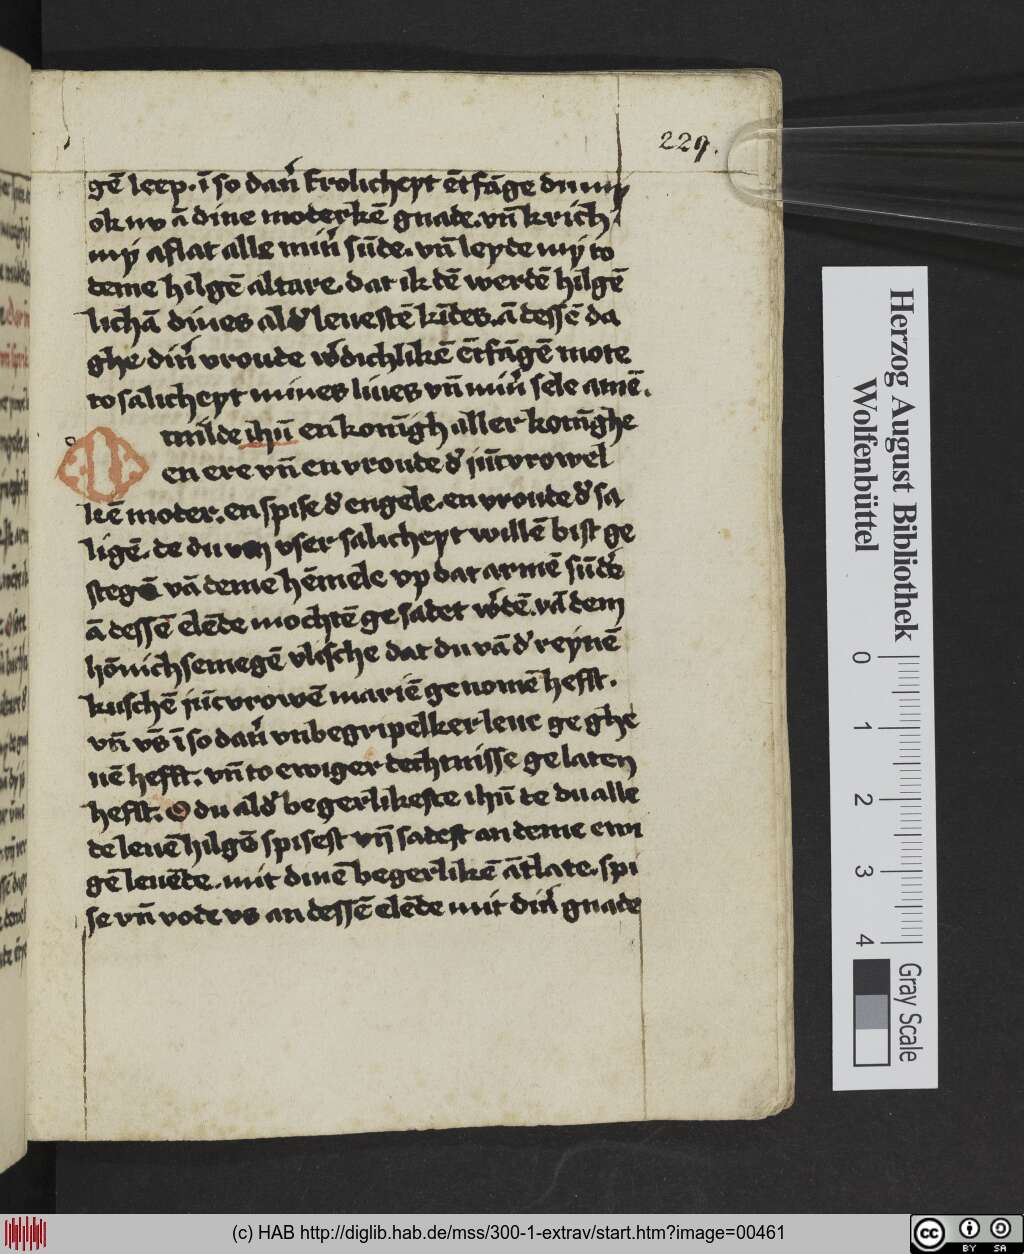 229.
gē leep. ī so dan̄ frolicheyt ētfāge du my
ok nv ā dine moderkē gnade. vn̄ krich
my aflat alle min̄ sūde. vn̄ leyde my to
deme hilgē altare. dat ik dē werdē hilgē
lichā dines ald' leuestē kīdes. ā dessē da
ghe din̄ vroude w'dichlikē ētfāgē mote
to salicheyt mines liues vn̄ min̄ sele amē.
O milde ihū en konīgh aller konīghe
en ere vn̄ en vroude d' jūcvrowel
kē moder. en spise d' engele. en vroude d' sa
ligē. de du vm vser salicheyt willē bist ge
stegē vā deme hēmele vp dat armē sūd'
ā dessē elēde mochtē ge sadet w'dē. vā dem
hōnichsemegē vlesche dat du vā d' reynē
kuschē jūcvrowē mariē ge nomē hefst.
vn̄ vs ī so dan̄ vnbegripelker leue ge ghe
uē hefst. vn̄ to ewiger dechtnisse ge laten
hefst. O du ald' begerlikeste ihū de du alle
de leuē hilgē spisest vn̄ sadest an deme ewi
gē leuēde. mit dinē begerlikē ātlate. spi
se vn̄ vode vs an dessē elēde mit din̄ gnade
Herzog August Bibliothek
Wolfenbüttel
0 1 2 3 4
Gray Scale
(c) HAB http://diglib.hab.de/mss/300-1-extrav/start.htm?image=00461
cc BY SA